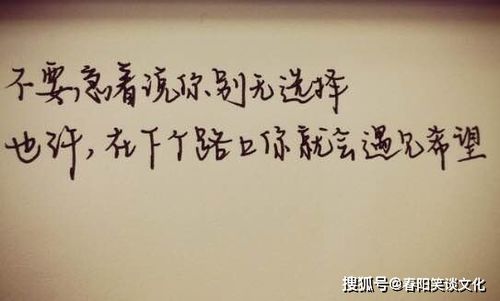 不要急着说你别无选择
也许,在下个路口你就会遇见希望
搜狐号@春阳笑谈文化